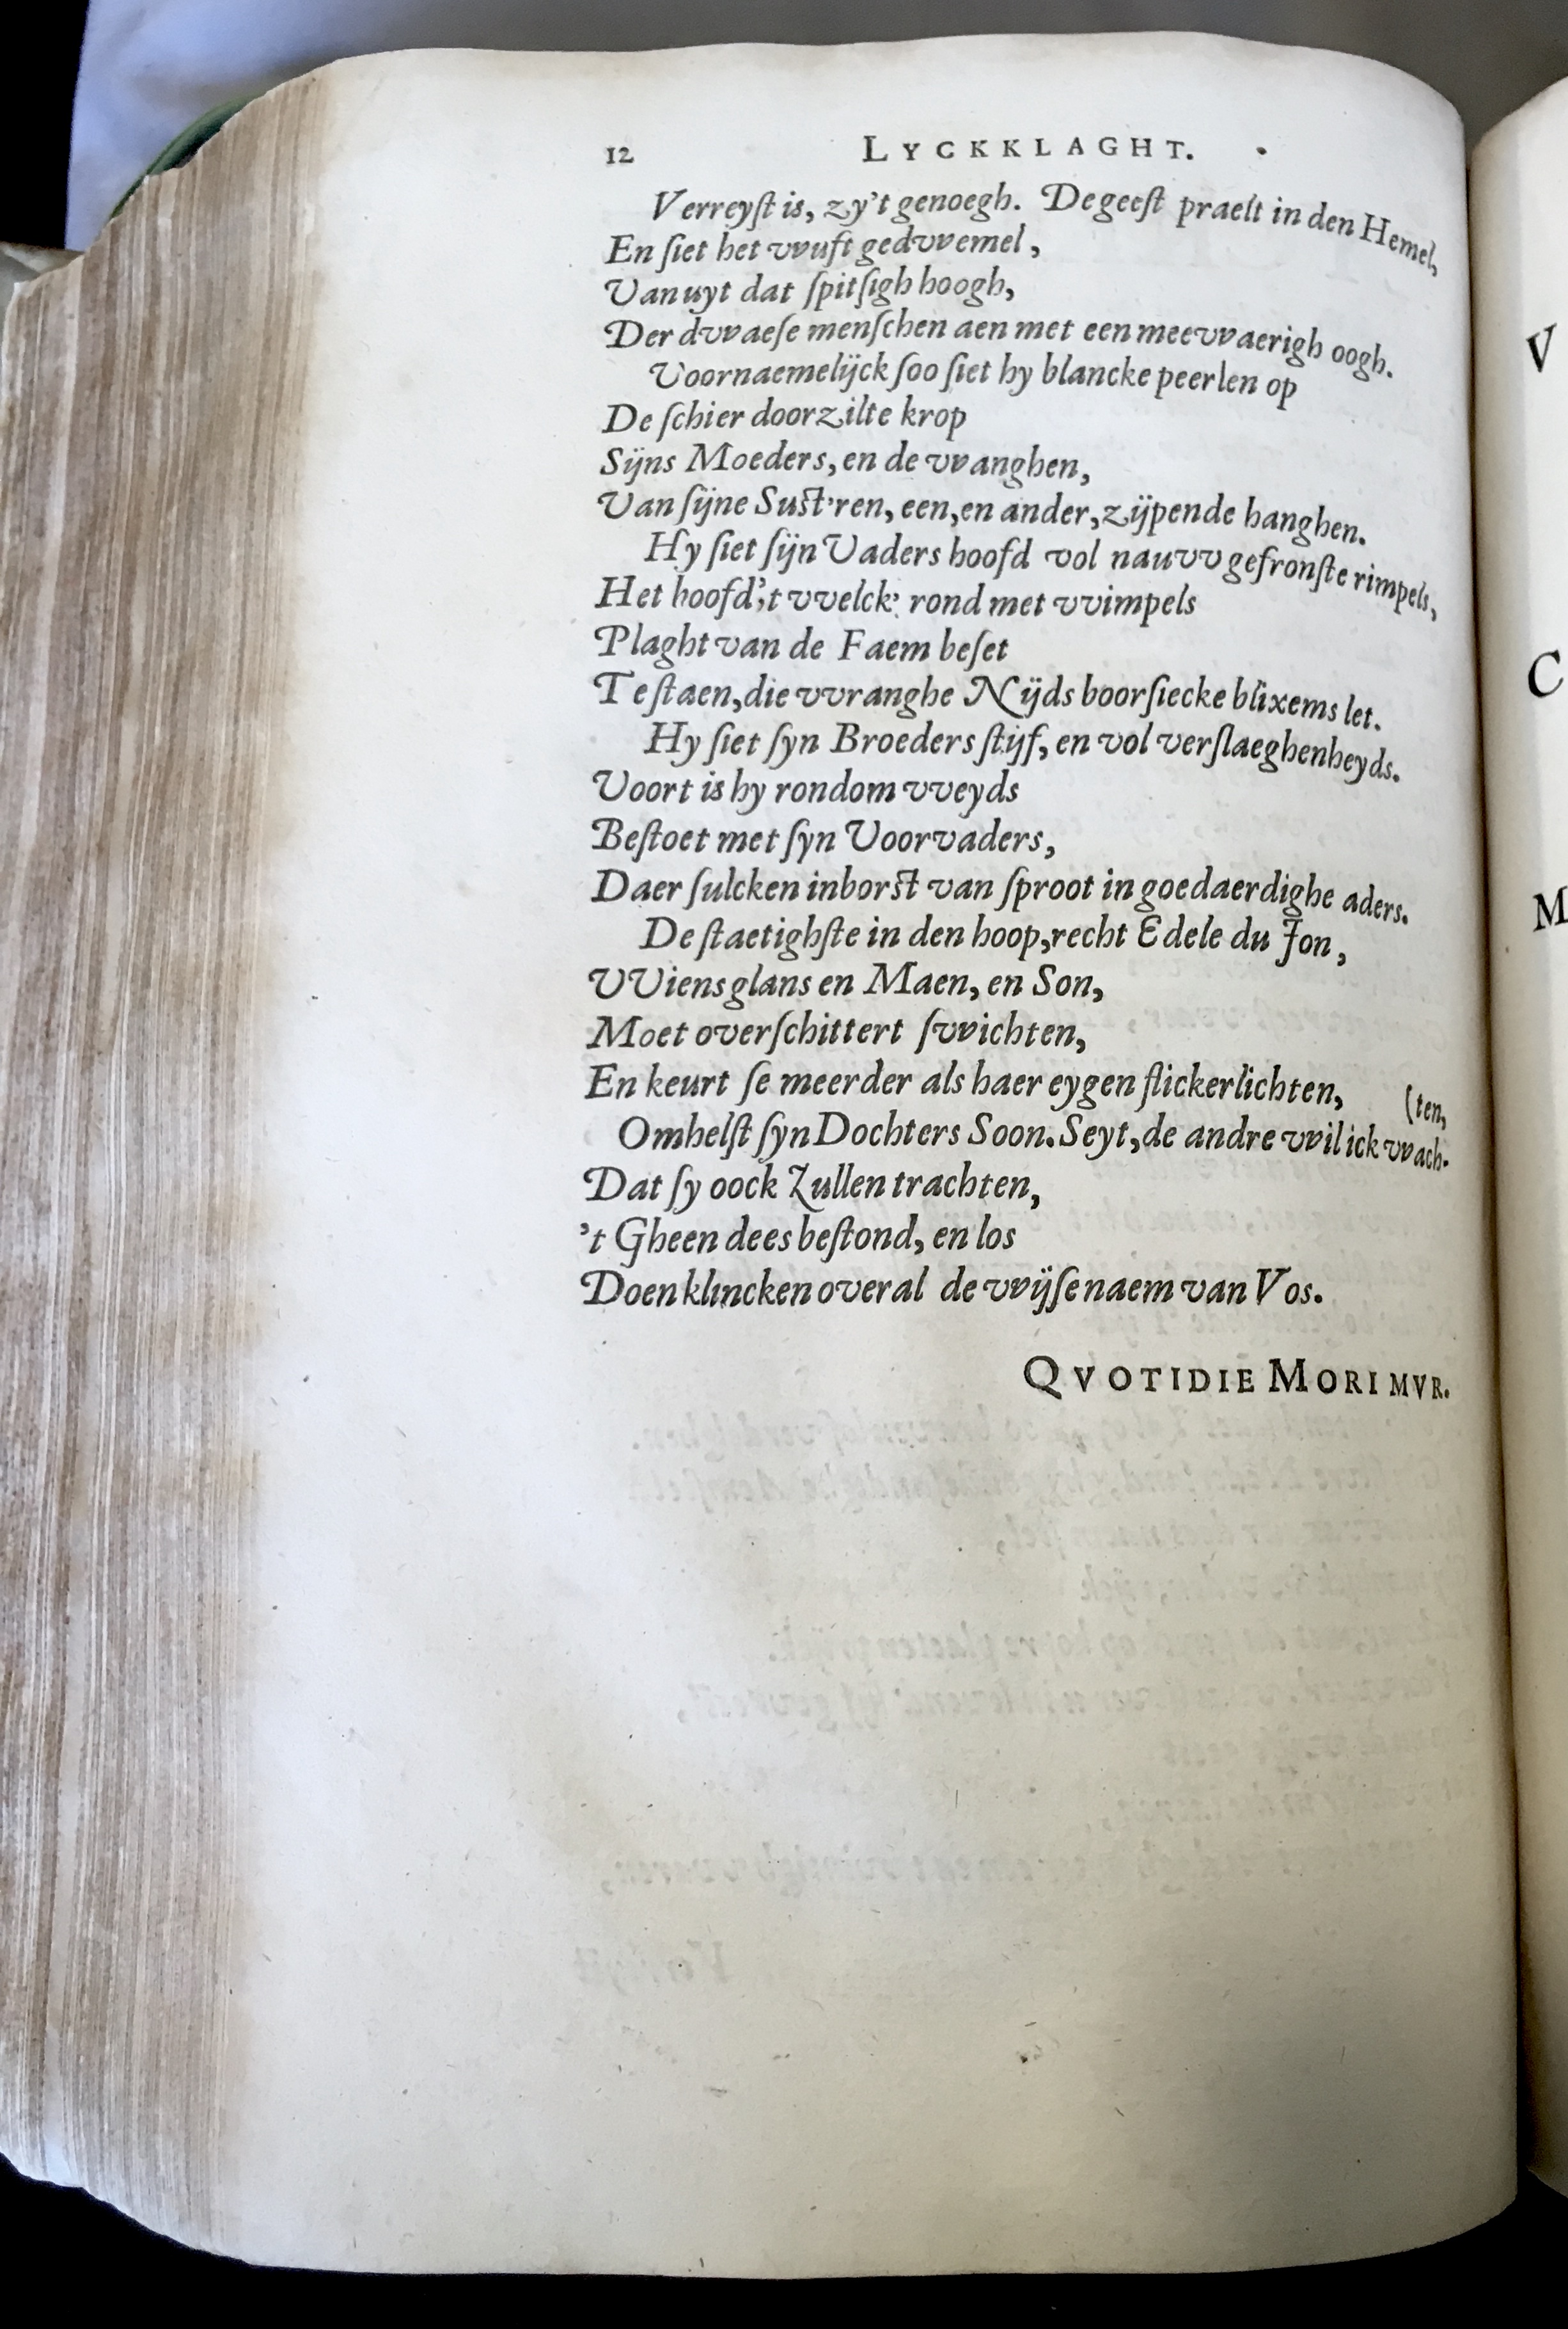 12 LYCKKLAGHT.
Verreyſt is, zy't genoegh. De geeſt praelt in den Hemel,
En ſiet het vvuft gedvvemel,
Van uyt dat ſpitſigh hoogh,
Der dvvaeſe menſchen aen met een meevvaerigh oogh.
Voornaemelijck ſoo ſiet hy blancke peerlen op
De ſchier doorzilte krop
Sijns Moeders, en de vvanghen,
Van ſijne Suſt'ren, een, en ander, zijpende hanghen.
Hy ſiet ſijn Vaders hoofd vol nauvv gefronſte rimpels,
Het hoofd, 't vvelck: rond met vvimpels
Plaght van de Faem beſet
Te ſtaen, die vvranghe Nijds boorſiecke blixems let.
Hy ſiet ſyn Broeders ſtijf, en vol verſlaeghenheyds.
Voort is hy rondom vveyds
Beſtoet met ſyn Voorvaders,
Daer ſulcken inborſt van ſproot in goedaerdighe aders.
De ſtaetighſte in den hoop, recht Edele du Jon,
VViens glans en Maen, en Son,
Moet overſchittert ſvvichten,
En keurt ſe meerder als haer eygen flickerlichten,
(ten,
Omhelſt ſyn Dochters Soon. Seyt, de andre vvil ick vvach-
Dat ſy oock zullen trachten,
't Gheen dees beſtond, en los
Doen klincken overal de vvijſe naem van Vos.
QVOTIDIE MORIMVR.
V
C
M